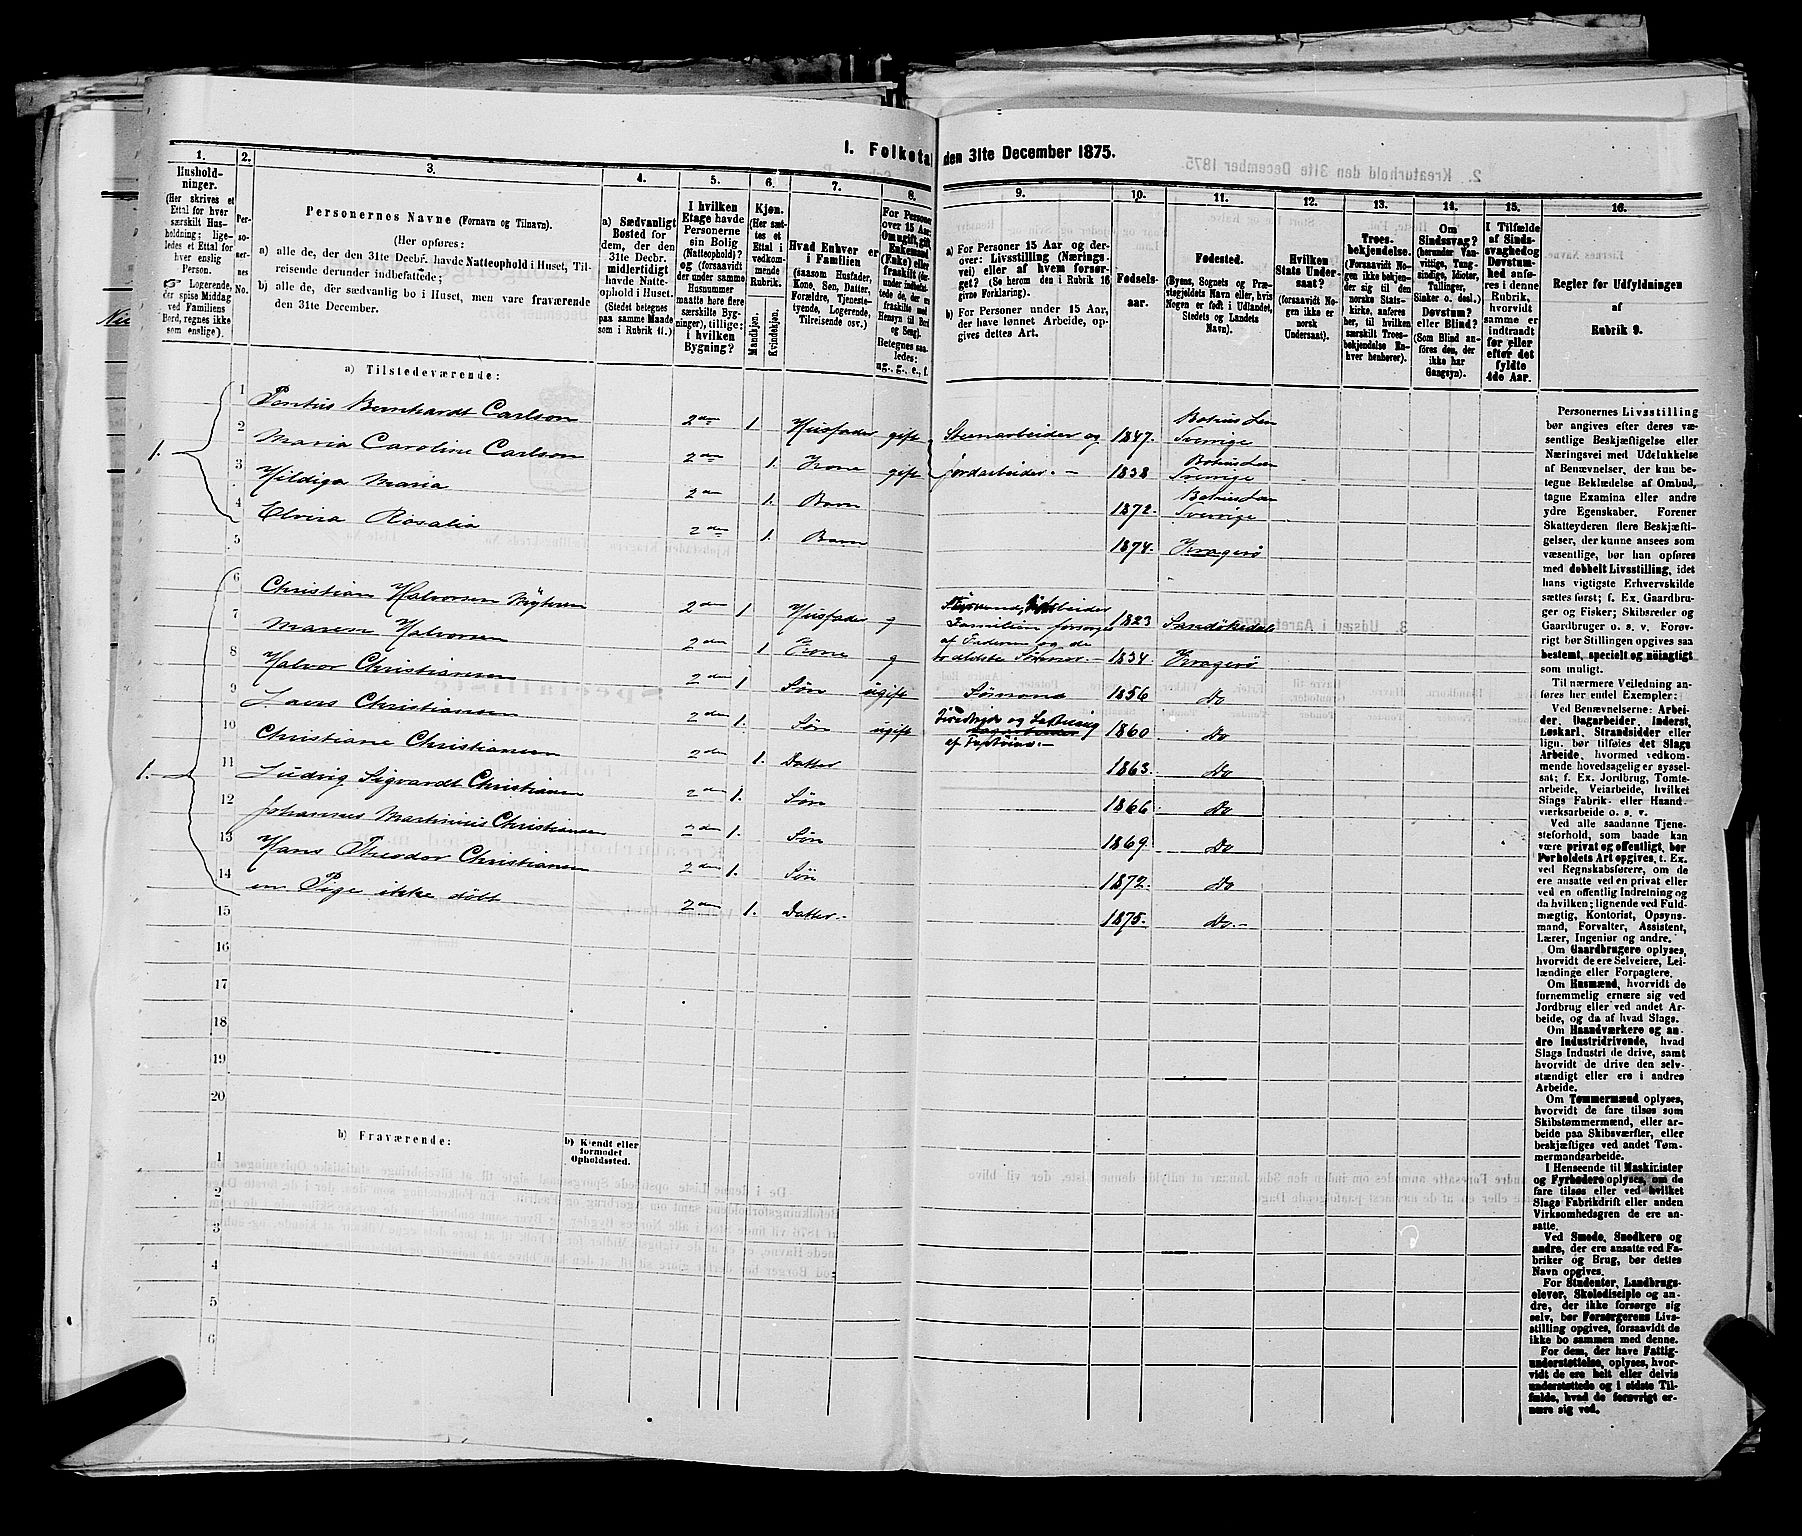 I. Folketal den 31te December 1875.
1.
Husholdninger.
(Her skrives et Ettal for hver særskilt Husholdning; ligeledes et Ettal for hver enslig Person.
☞ Logerende, der spise Middag ved Familiens Bord, regnes ikke som enslige).
2.
Personernes No.
3.
Personernes Navne (Fornavn og Tilnavn).
(Her opføres:
a) alle de, der den 31te Decbr. havde Natteophold i Huset, Tilreisende derunder indbefattede;
b) alle de, der sædvanlig bo i Huset, men vare fraværende den 31te December.
4.
a) Sædvanligt Bosted for dem, der den 31te Decbr. midlertidigt havde Natteophold i Huset.
(Stedet betegnes paa samme Maade som i Rubrik 11.)
5.
I hvilken Etage havde Personerne sin Bolig (Natteophold)? og (forsaavidt der under samme Husnummer maatte høre flere særskilte Bygninger), tillige: i hvilken Bygning?
6.
Kjøn.
(Her sættes et Ettal i vedkommende Rubrik.
Mandkjøn.
Kvindekjøn.
7.
Hvad Enhver er i Familien
(saasom Husfader, Kone, Søn, Datter, Forældre, Tjenestetyende, Logerende, Tilreisende osv.)
8.
For Personer over 15 Aar: Om ugift, gift, Enkemand (Enke) eller fraskilt
Betegnes saaledes: ug., g., e., f.
9.
a) For Personer 15 Aar og derover: Livsstilling (Næringsvei) eller af hvem forsørget? (Se herom den i Rubrik 16 givne Forklaring).
b) For Personer under 15 Aar, der have lønnet Arbeide, opgives dettes Art.
10.
Fødselsaar.
11.
Fødested.
(Byens, Sognets og Præstegjeldets Navn eller, hvis Nogen er født i Udlandet, Stedets og Landets Navn).
12.
Hvilken Stats Undersaat?
(forsaavidt Nogen ikke er norsk Undersaat).
13.
Troesbekjendelse.
(Forsaavidt Nogen ikke bekjender sig til den norske Statskirke, anføres her, til hvilken særskilt Troesbekjendelse Enhver henhører).
14.
Om Sindssvag? (herunder Vanvittige, Tungsindige, Idioter, Tullinger, Sinker o. desl.)
Døvstum? eller Blind?
(Som Blind anføres den, der ikke har Gangsyn).
15.
I Tilfælde af Sindssvaghed og Døvstumhed anføres i denne Rubrik, hvorvidt samme er indtraadt før eller efter det fyldte 4de Aar.
16.
Regler for Udfyldningen af Rubrik 9.
a) Tilstedeværende:
1. 1 Pontus Bernhardt Carlson 2den 1. Husfader gift Stenarbeider og jordarbeider.- 1847. Bohus Len Sverrige
2 Maria Caroline Carlson 2den 1. Kone gift 1838 Bohus Len Sverrige
3 Hildiga Maria 2den 1. Barn 1872. Bohus Len Sverrige
4 Elvira Rosalia 2den 1. Barn 1874. Kragerö
5
1. 6 Christian Halvorsen 2den 1 Husfader g 1823 Sandökedal
Familien forsørges af Faderen og de
7 Maren Halvorsen 2den 1 Kone g 1834. Kragerö
8 Halvor Christiansen 2den 1. Sön ugift Sömand 1856 Do
9 Laurs Christiansen 2den 1. Sön ugift 1860 Do
10 Christiane Christiansen 2den 1. Datter 1863. Do
11 Ludvig Sigvardt Christiansen 2den 1. Sön 1866 Do
12 Johannes Martinius Christiansen 2den 1. Sön 1869. Do
13 Hans Theodor Christiansen 2den 1. Sön 1872. Do
14 en Pige ikke döbt 2den 1. Datter.- 1875. Do.-
15
16
17
18
19
20
b) Fraværende:
b) Kjendt eller formodet Opholdssted.
1
2
3
4
5
6
Personernes Livsstilling
bør angives efter deres væsentlige Beskjæftigelse eller
Næringsvei med Udelukkelse
af Benævnelser, der kun betegne Beklædelse af Ombud,
tagne Examina eller andre
ydre Egenskaber. Forener
Skatteyderen flere Beskjæftigelser, der kunne ansees som
væsentlige, bør han opføres
med dobbelt Livsstilling, idet
hans vigtigste Erhvervskilde
sættes først; f. Ex. Gaardbruger og Fisker; Skibsreder og
Gaardbruger o. s. v. Forøvrigt bør Stillingen opgives saa
bestemt, specielt og nöiagtigt
som muligt.
Til nærmere Veiledning anføres her endel Exempler:
Ved Benævnelserne: Arbeider, Dagarbeider, Inderst,
Løskarl, Strandsidder eller
lign. bør tilføies det Slags
Arbeide, hvormed vedkommende hovedsagelig er sysselsat; f. Ex. Jordbrug, Tomtearbeide, Veiarbeide, hvilket
Slags Fabrik- eller Haandværksarbeide o. s. v.
Ved alle saadanne Tjenesteforhold, som baade kan
være privat og offentligt, bør
Forholdets Art opgives, t. Ex.
ved Regnskabsførere, om de
ere ansatte ved en privat eller
ved en offentlig Indretning og
da hvilken; lignende ved Fuldmægtig, Kontorist, Opsynsmand, Forvalter, Assistent,
Lærer, Ingeniør og andre.
Om Gaardbrugere oplyses,
hvorvidt de ere Selveiere, Leilændinge eller Forpagtere.
Om Husmænd, hvorvidt de
fornemmelig ernære sig ved
Jordbrug eller ved andet Arbeide, og da af hvad Slags.
Om Haandværkere og andre Industridrivende, hvad
Slags Industri de drive, samt
hvorvidt de drive den selvstændigt eller ere i andres
Arbeide.
Om Tømmermænd oplyses,
hvorvidt de fare tilsøs som
Skibstømmermænd, eller arbeide paa Skibsværfter, eller
beskjæftiges ved andet Tømmermandsarbeide.
I Henseende til Maskinister
og Fyrbødere oplyses, om de
fare tilsøs eller ved hvilket
Slags Fabrikdrift eller anden
Virksomhedsgren de ere ansatte.
Ved Smede, Snedkere og
andre, der ere ansatte ved Fabriker og Brug, bør dettes
Navn opgives.
For Studenter, Landbrugselever, Skoledisciple og andre, der ikke forsørge sig
selv, bør Forsørgerens Livsstilling opgives, forsaavidt de
ikke bo sammen med denne.
For dem, der have Fattigunderstøttelse, oplyses, hvorvidt de ere helt eller delvis
understøttede og i sidste Tilfælde, hvad de forøvrigt ernære sig ved.